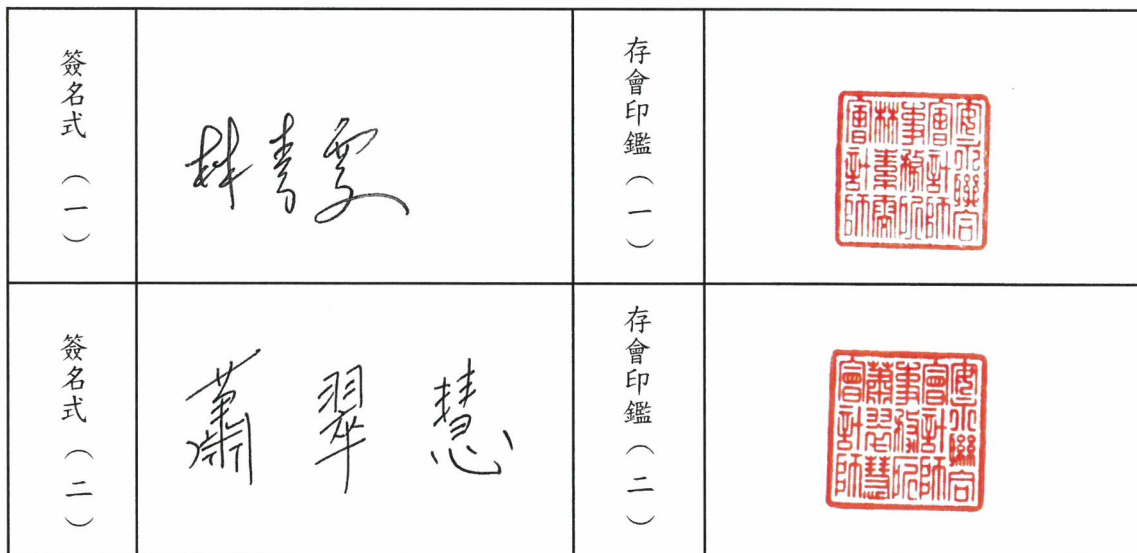 簽名式（一）
林素雯
存會印鑑（一）
安永聯合
會計師
事務所
林素雯
會計師
簽名式（二）
蕭翠慧
存會印鑑（二）
安永聯合
會計師
事務所
蕭翠慧
會計師